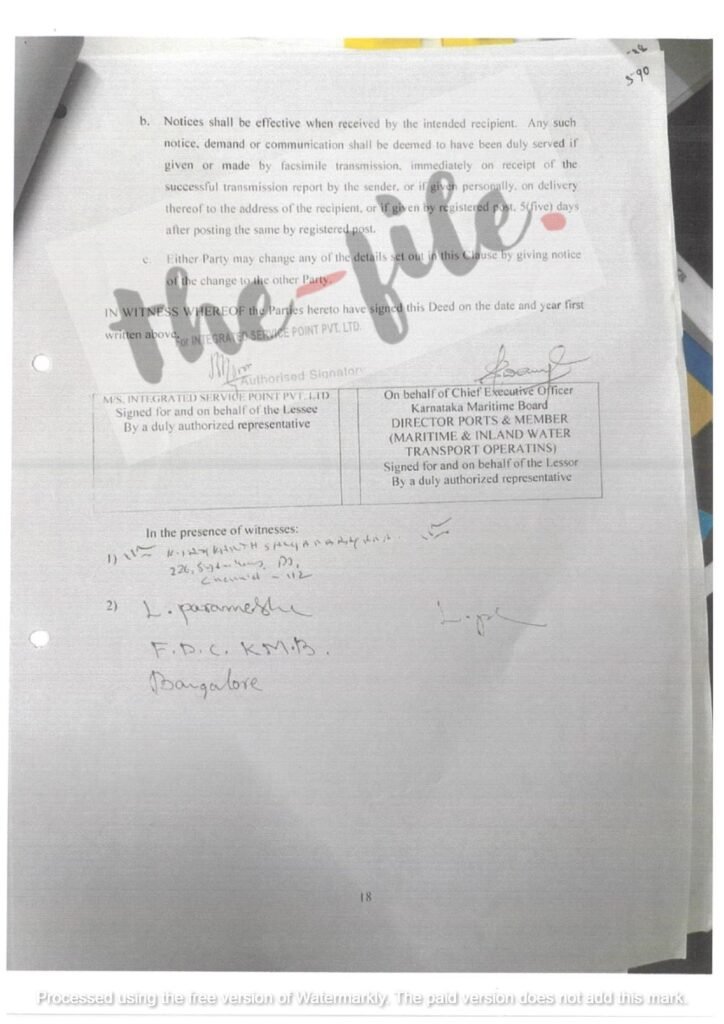 590
b. Notices shall be effective when received by the intended recipient. Any such
notice, demand or communication shall be deemed to have been duly served if
given or made by facsimile transmission, immediately on receipt of the
successful transmission report by the sender, or if given personally, on delivery
thereof to the address of the recipient, or if given by registered post, 5(five) days
after posting the same by registered post.
c. Either Party may change any of the details set out in this Clause by giving notice
of the change to the other Party.
the-file.
IN WITNESS WHEREOF the Parties hereto have signed this Deed on the date and year first
written above.
For INTEGRATED SERVICE POINT PVT. LTD.
Authorised Signatory
M/S. INTEGRATED SERVICE POINT PVT. LTD
Signed for and on behalf of the Lessee
By a duly authorized representative
On behalf of Chief Executive Officer
Karnataka Maritime Board
DIRECTOR PORTS & MEMBER
(MARITIME & INLAND WATER
TRANSPORT OPERATINS)
Signed for and on behalf of the Lessor
By a duly authorized representative
In the presence of witnesses:
1)
226,
Chennai - 112
2) L. parameshi
F.D.C. KMB.
Bangalore
18
Processed using the free version of Watermarkly. The paid version does not add this mark.